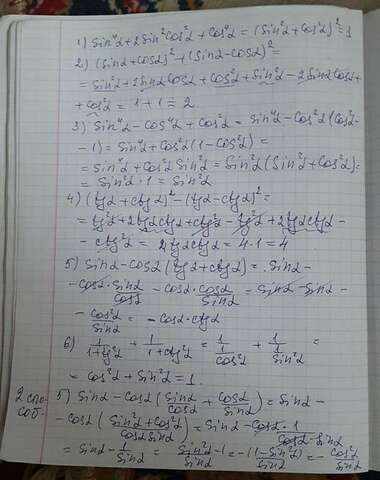 1) sin⁴α+2sin²αcos²α+cos⁴α = (sin²α+cos²α)²=1
2) (sinα+cosα)²+(sinα-cosα)²=
= sin²α+2sinαcosα+cos²α+sin²α-2sinαcosα+
+cos²α = 1+1 = 2
3) sin⁴α-cos⁴α+cos²α = sin⁴α-cos²α(cos²α-
-1) = sin⁴α+cos²α(1-cos²α) =
= sin⁴α+cos²α sin²α = sin²α(sin²α+cos²α)=
= sin²α·1 = sin²α
4) (tgα+ctgα)²-(tgα-ctgα)²=
= tg²α+2tgαctgα+ctg²α-tg²α+2tgαctgα-
-ctg²α = 2tgαctgα = 4·1 = 4
5) sinα-cosα(tgα+ctgα) = sinα-
-cosα·sinα/cosα - cosα·cosα/sinα = sinα-sinα-
-cos²α/sinα = -cosα·ctgα
6) 1/(1+tg²α) + 1/(1+ctg²α) = 1/(1/cos²α) + 1/(1/sin²α) =
= cos²α+sin²α = 1.
2 спо-
соб.
5) sinα-cosα(sinα/cosα + cosα/sinα) = sinα-
-cosα((sin²α+cos²α)/(cosα sinα)) = sinα - cosα·1/(cosα·sinα)
= sinα - 1/sinα = (sin²α-1)/sinα = -(1-sin²α)/sinα = -cos²α/sinα